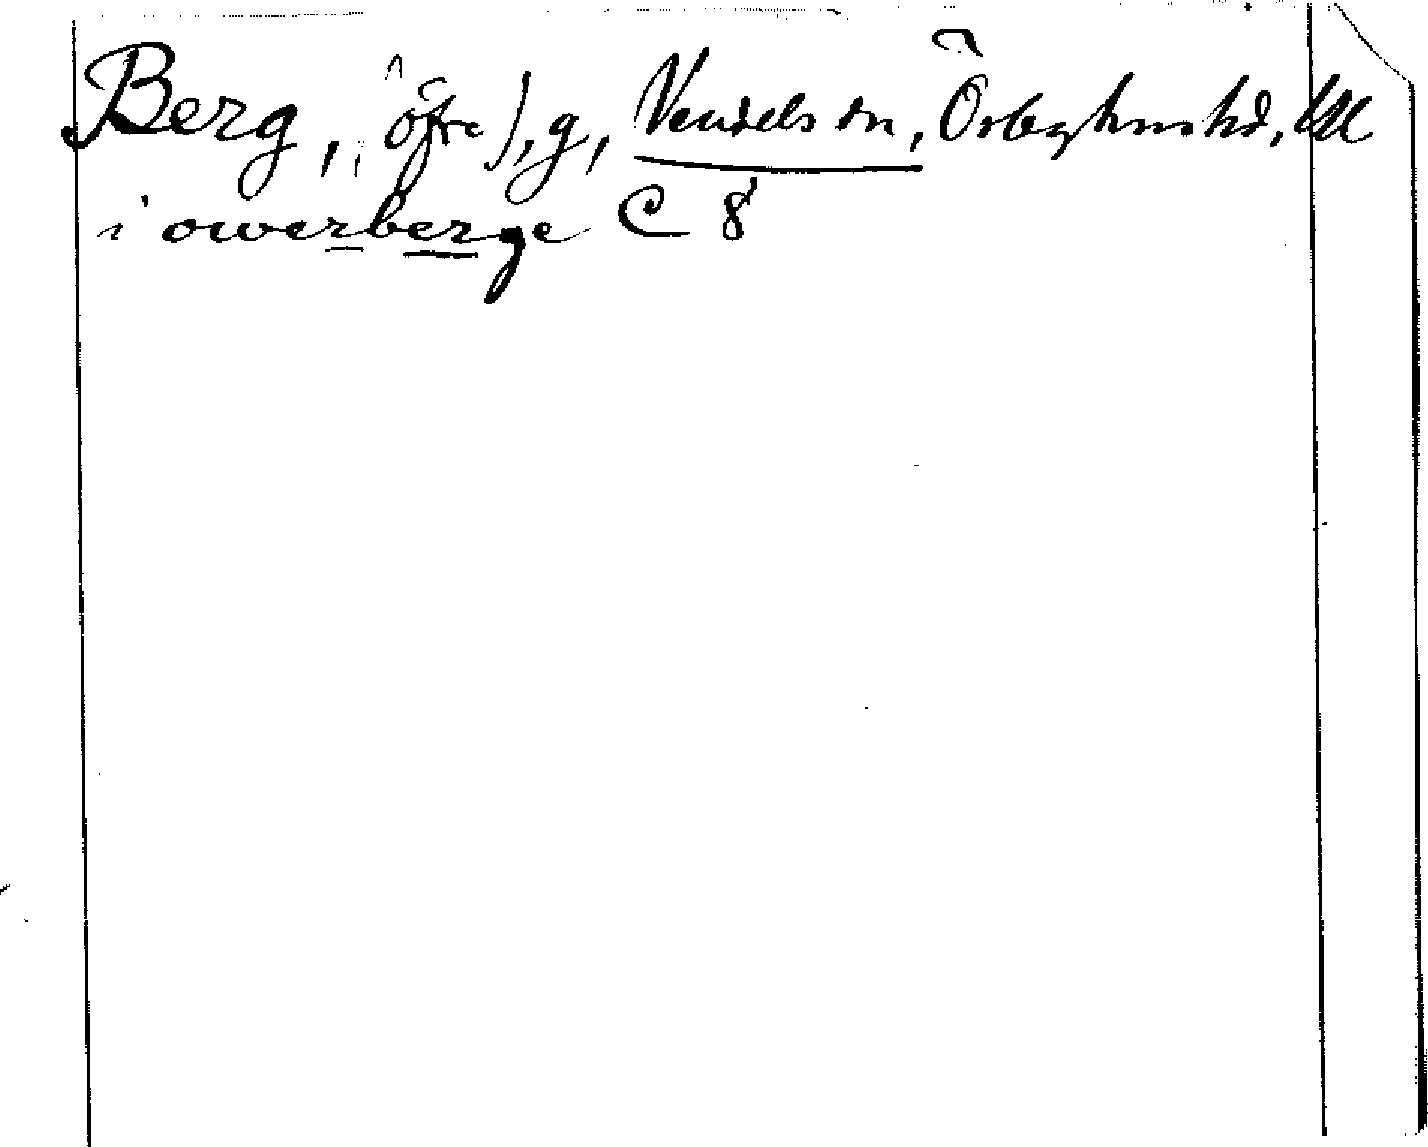 Berg, öfre), g, Vendels sn, Örbyhus hd, Ul
i owerberge C 8